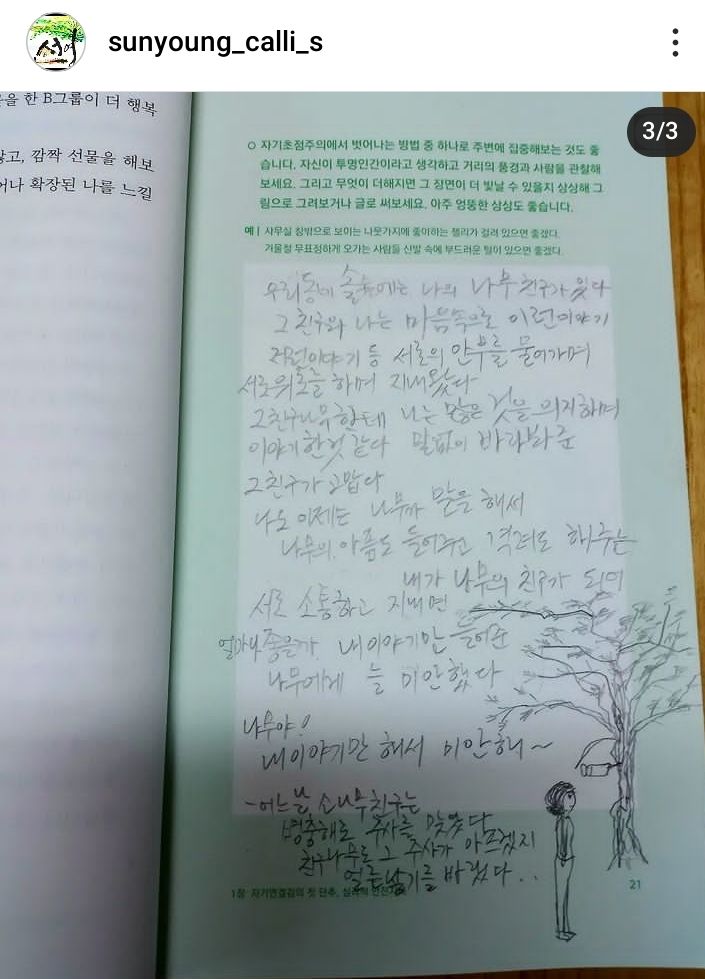 sunyoung_calli_s
서여
3/3
을 한 B그룹이 더 행복
않고, 깜짝 선물을 해보
어나 확장된 나를 느낄
○ 자기초점주의에서 벗어나는 방법 중 하나로 주변에 집중해보는 것도 좋
습니다. 자신이 투명인간이라고 생각하고 거리의 풍경과 사람을 관찰해
보세요. 그리고 무엇이 더해지면 그 장면이 더 빛날 수 있을지 상상해 그
림으로 그려보거나 글로 써보세요. 아주 엉뚱한 상상도 좋습니다.
예 | 사무실 창밖으로 보이는 나뭇가지에 좋아하는 젤리가 걸려 있으면 좋겠다.
겨울철 무표정하게 오가는 사람들 신발 속에 부드러운 털이 있으면 좋겠다.
우리동네 솔숲에는 나의 나무친구가 있다
그 친구와 나는 마음속으로 이런이야기
저런이야기 등 서로의 안부를 물어가며
서로위로를 하며 지내왔다
그친구나무한테 나는 많은 것을 의지하며
이야기한것 같다 말없이 바라봐 준
그친구가 고맙다
나도 이제는 나무가 말을 해서
나무의 아픔도 들어주고 격려도 해주는
내가 나무의 친구가 되어
서로 소통하고 지내면
얼마나 좋을까 내이야기만 들어준
나무에게 늘 미안했다
나무야!
내이야기만 해서 미안해~
-어느날 소나무친구는
병충해로 주사를 맞았다
친구나무도 그 주사가 아프겠지
얼른 낫기를 바랬다..
1장 자기연결감의 첫 단추,
21